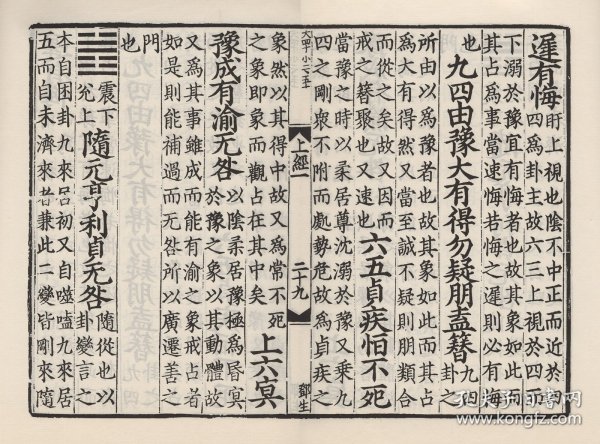 遲有悔
盱上視也不中正而近於四
四爲卦主故六三上視於四而
下溺於豫宜有悔者也故其象如此而
其占爲事當速悔若悔之遲則必有悔
也
九四由豫大有得勿疑朋盍簪
九四
卦之
所由以爲豫者也故其象如此而其占
爲大有得然又當至誠不疑則朋類合
而從之矣故又因而
戒之簪聚也又速也
六五貞疾恒不死
當豫之時以柔居尊沈溺於豫又乘九
四之剛衆不附而處勢危故爲貞疾之
上經一
二十九
鄭生
象然以其得中故又爲常不死
之象即象而觀占在其中矣
上六冥
豫成有渝无咎
以陰柔居豫極爲昏冥
於豫之象以其動體故
又爲其事雖成而能有渝之象戒占者
如是則能補過而无咎所以廣遷善之
門
也
震下
兌上
隨元亨利貞无咎
隨從也以
卦變言之
本自困卦九來居初又自噬嗑九來居
五而自未濟來者兼此二變皆剛來隨
孔夫子旧书网